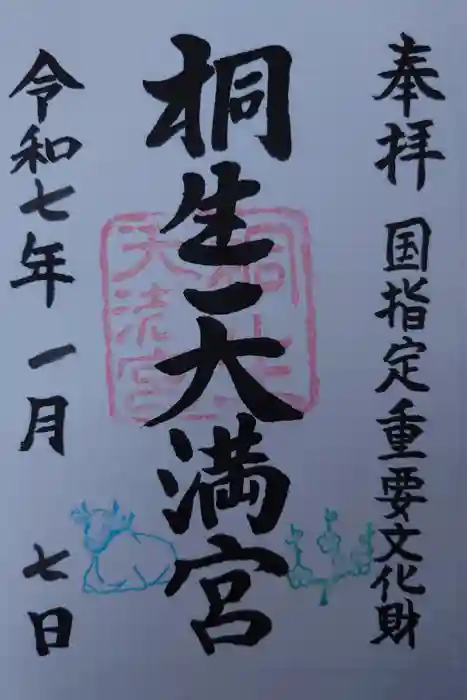 奉拝 国指定重要文化財
桐生天満宮
令和七年一月七日
桐生
天満宮